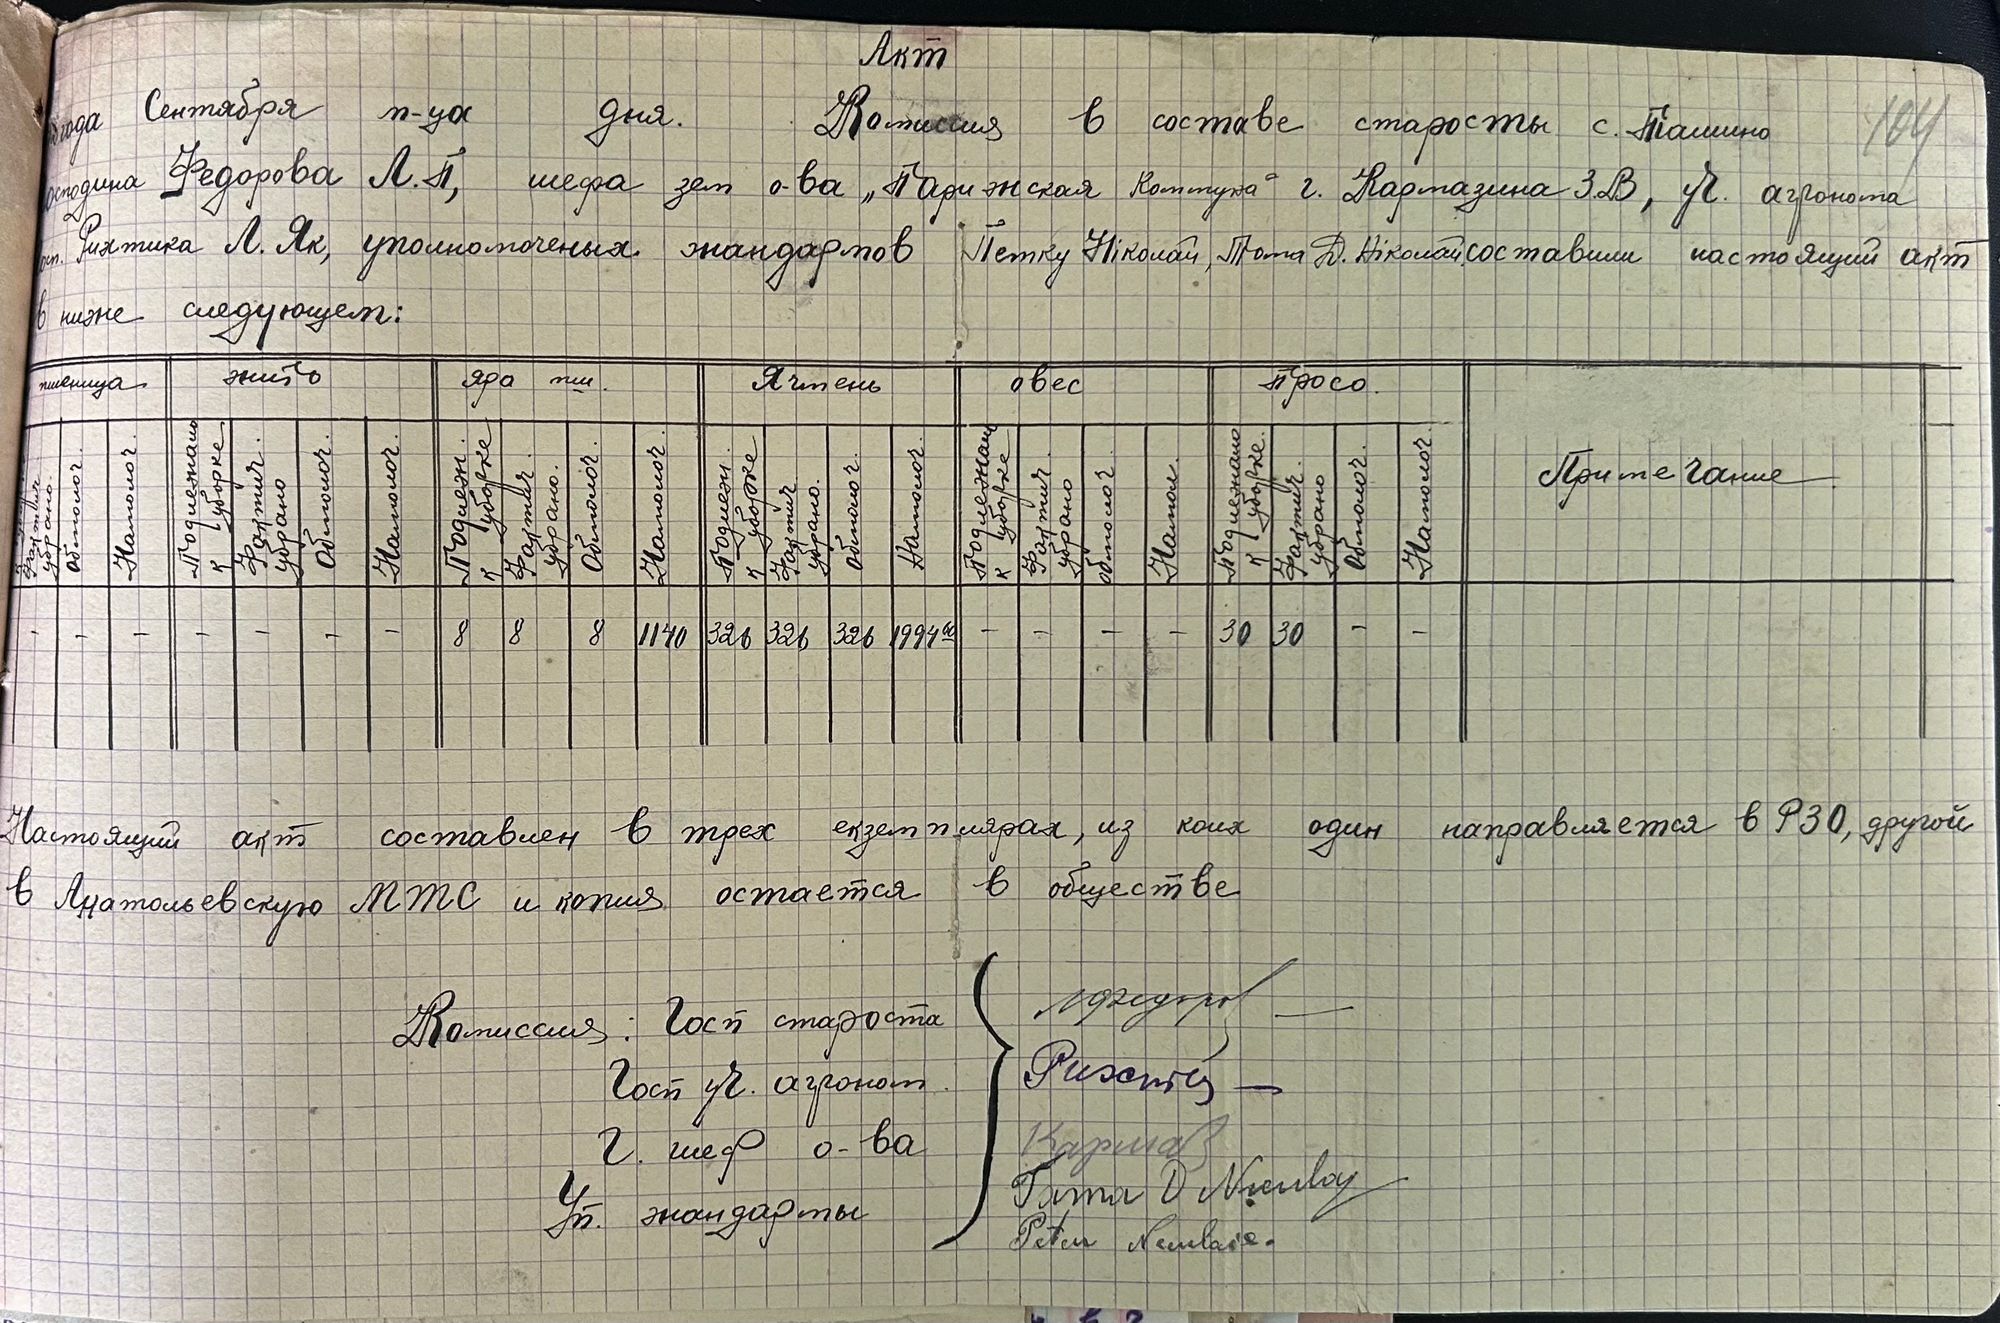 Акт
года Сентября м-ца дня. Комиссия в составе старосты с. Ташино
104
господина Федорова Л.П, шефа зем о-ва „Парижская Коммуна" г. Кармазина З.В, уч. агронома
Рихтика Л. Як, уполномоченых жандармов Петку Ніколай, Тома Д. Ніколай, составили настоящий акт
в ниже следующем:
пшеница жито яра пш. Ячмень овес Просо. Примечание
Фактич убрано. Обмолоч. Намолоч. Подлежало к уборке Фактич. убрано Обмолоч. Намолоч. Подлеж. к уборке Фактич. убрано. Обмолоч. Намолоч. Подлеж. к уборке Фактич убрано. Обмолоч. Намолоч. Подлежал к уборке Фактич. убрано обмолоч. Намол. Подлежало к уборке. Фактич. убрано Обмолоч. Намолоч.
- - - - - - - 8 8 8 1140 326 326 326 1994 60 - - - - 30 30 - -
Настоящий акт составлен в трех екземплярах, из коих один направляется в РЗО, другой
в Анатольевскую МТС и копия остается в обществе
Комиссия: Госп староста Лфедоров
Госп уч. агроном. Рихтик
г. шеф о-ва Кармаз
Уп. жандармы Toma D Nicolay
Petcu Neculaie.